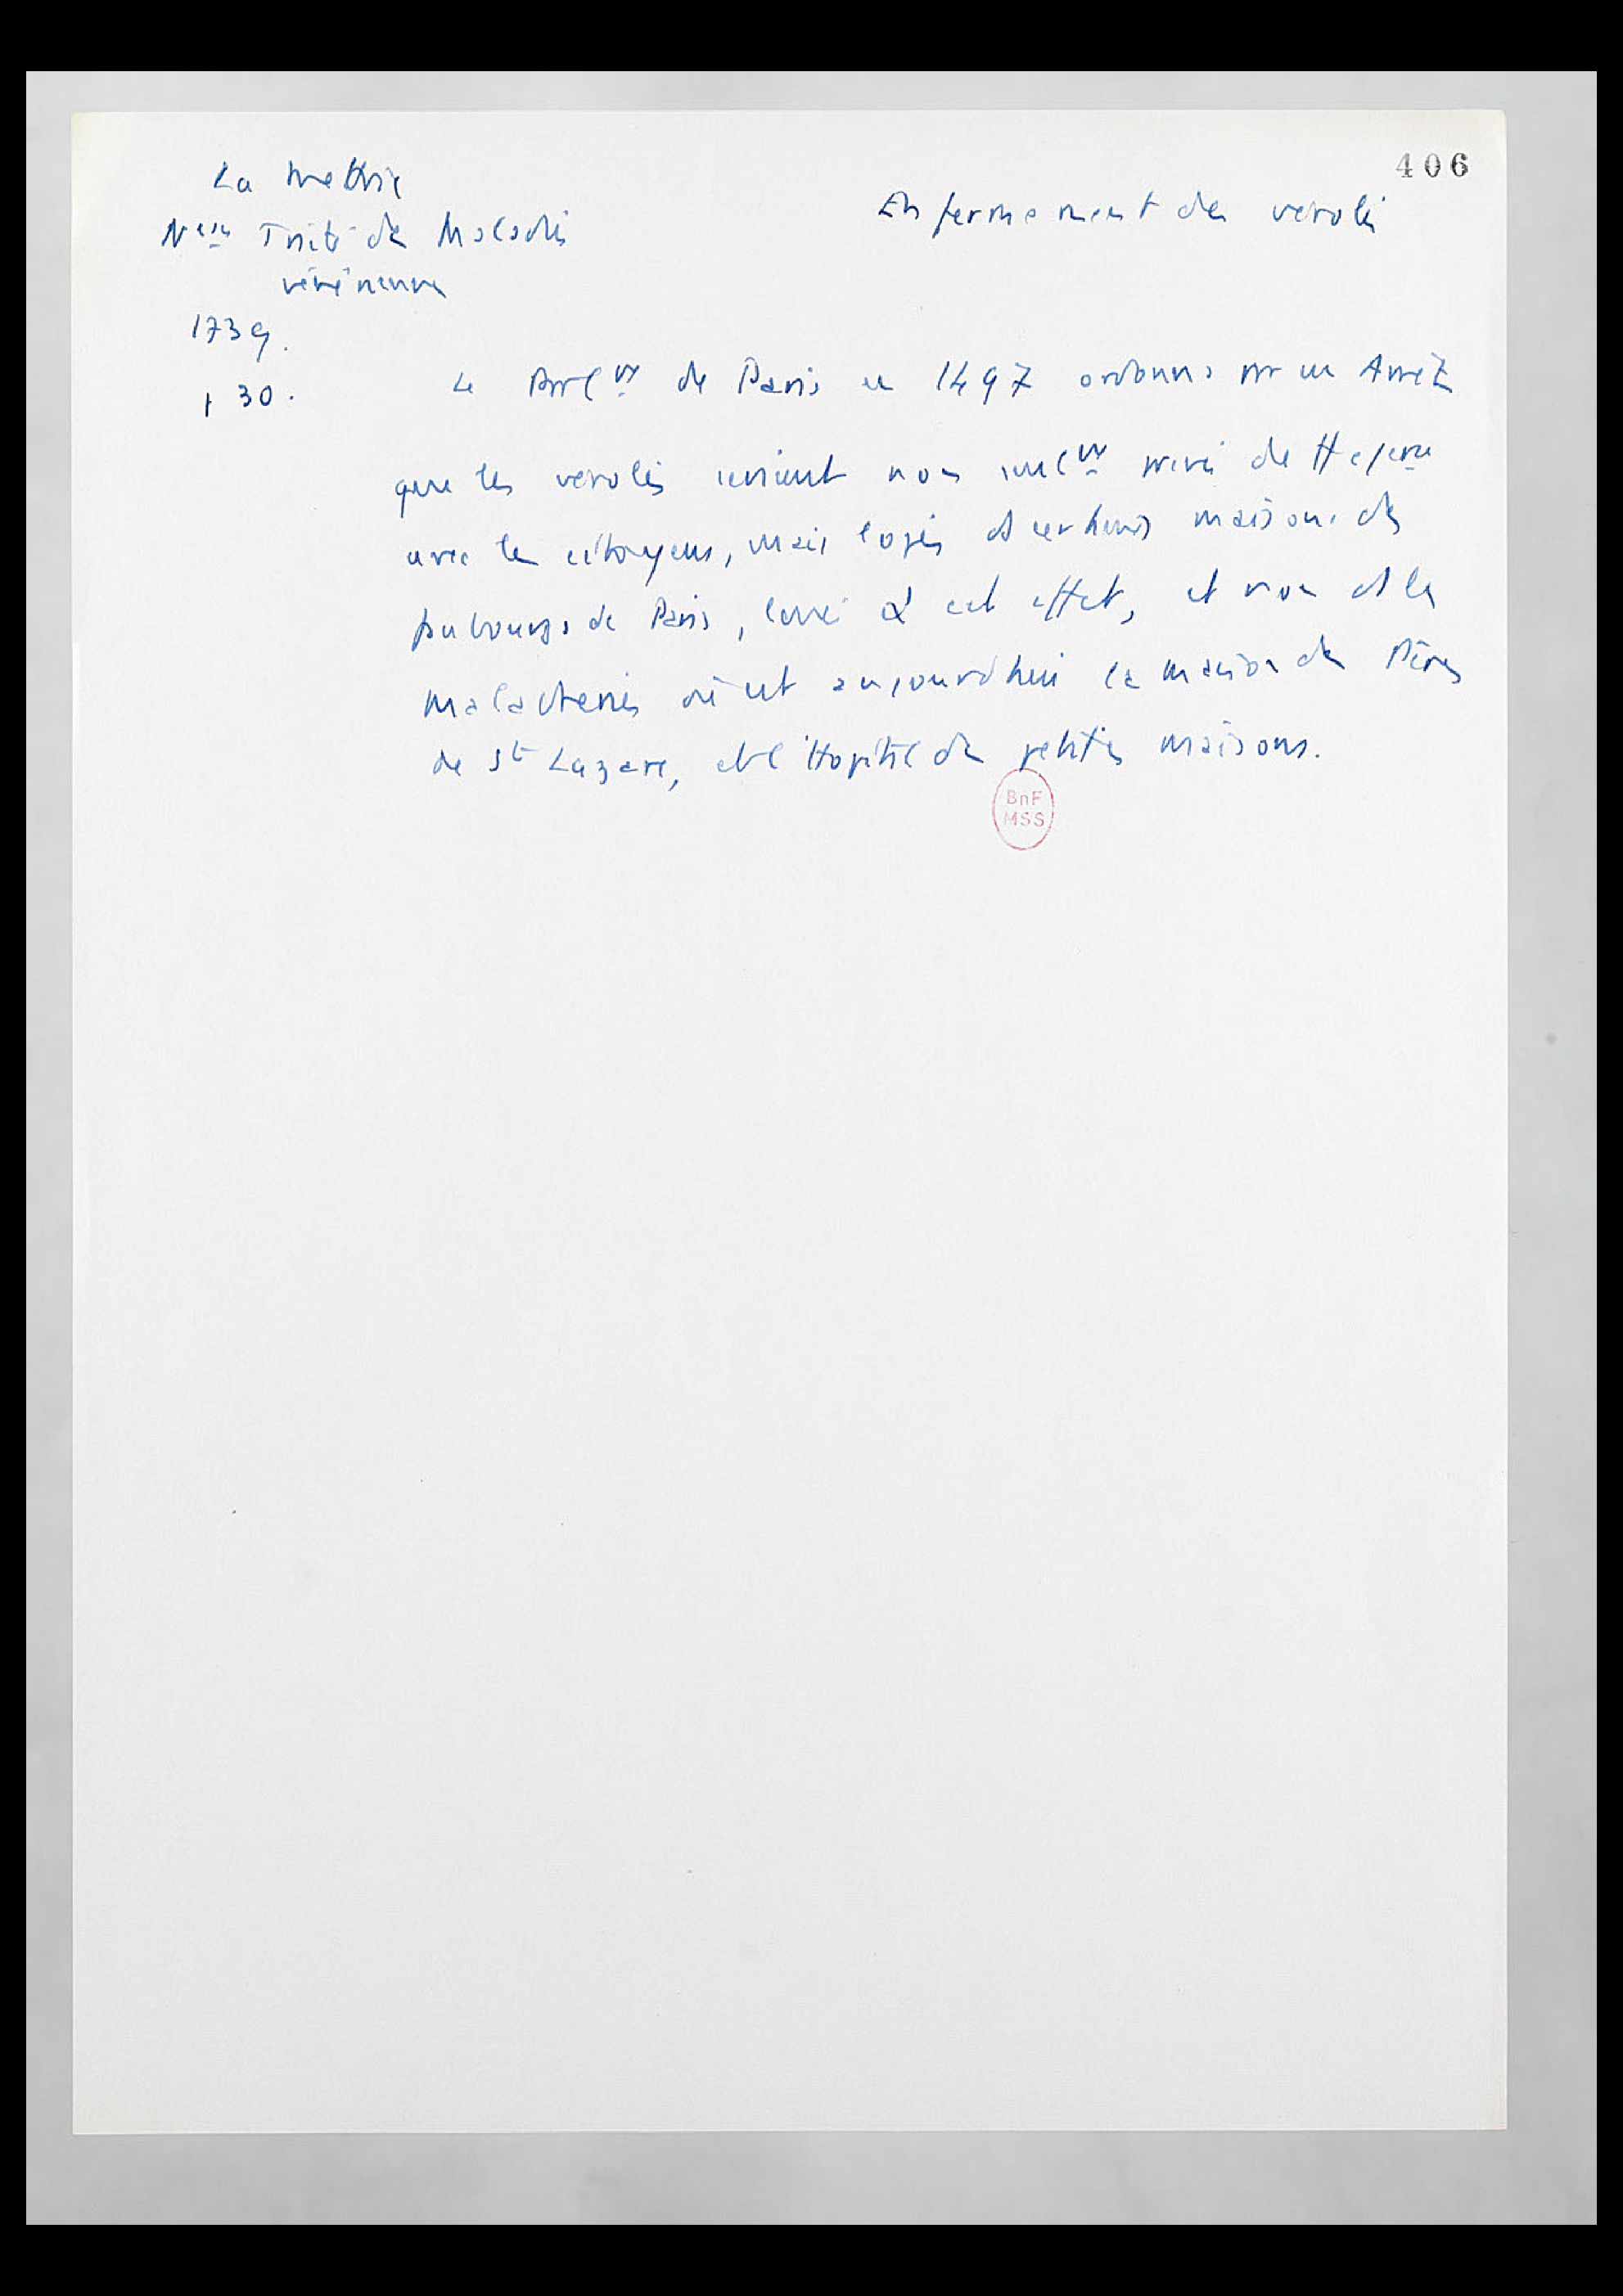 406
La Mettrie
Nveau Traité des Maladies
vénériennes
1739.
p 30.
Enfermement des verolés
Le Parlnt de Paris en 1497 ordonna par un Arrêt
que les verolés seraient non seulnt privés de
avec les citoyens, mais logés ds certaines maisons des
faubourgs de Paris, louées à cet effet, et non ds les
maladreries où est aujourd'hui la maison des Pères
de St Lazare, et l'Hopital des petites maisons.
BnF
MSS